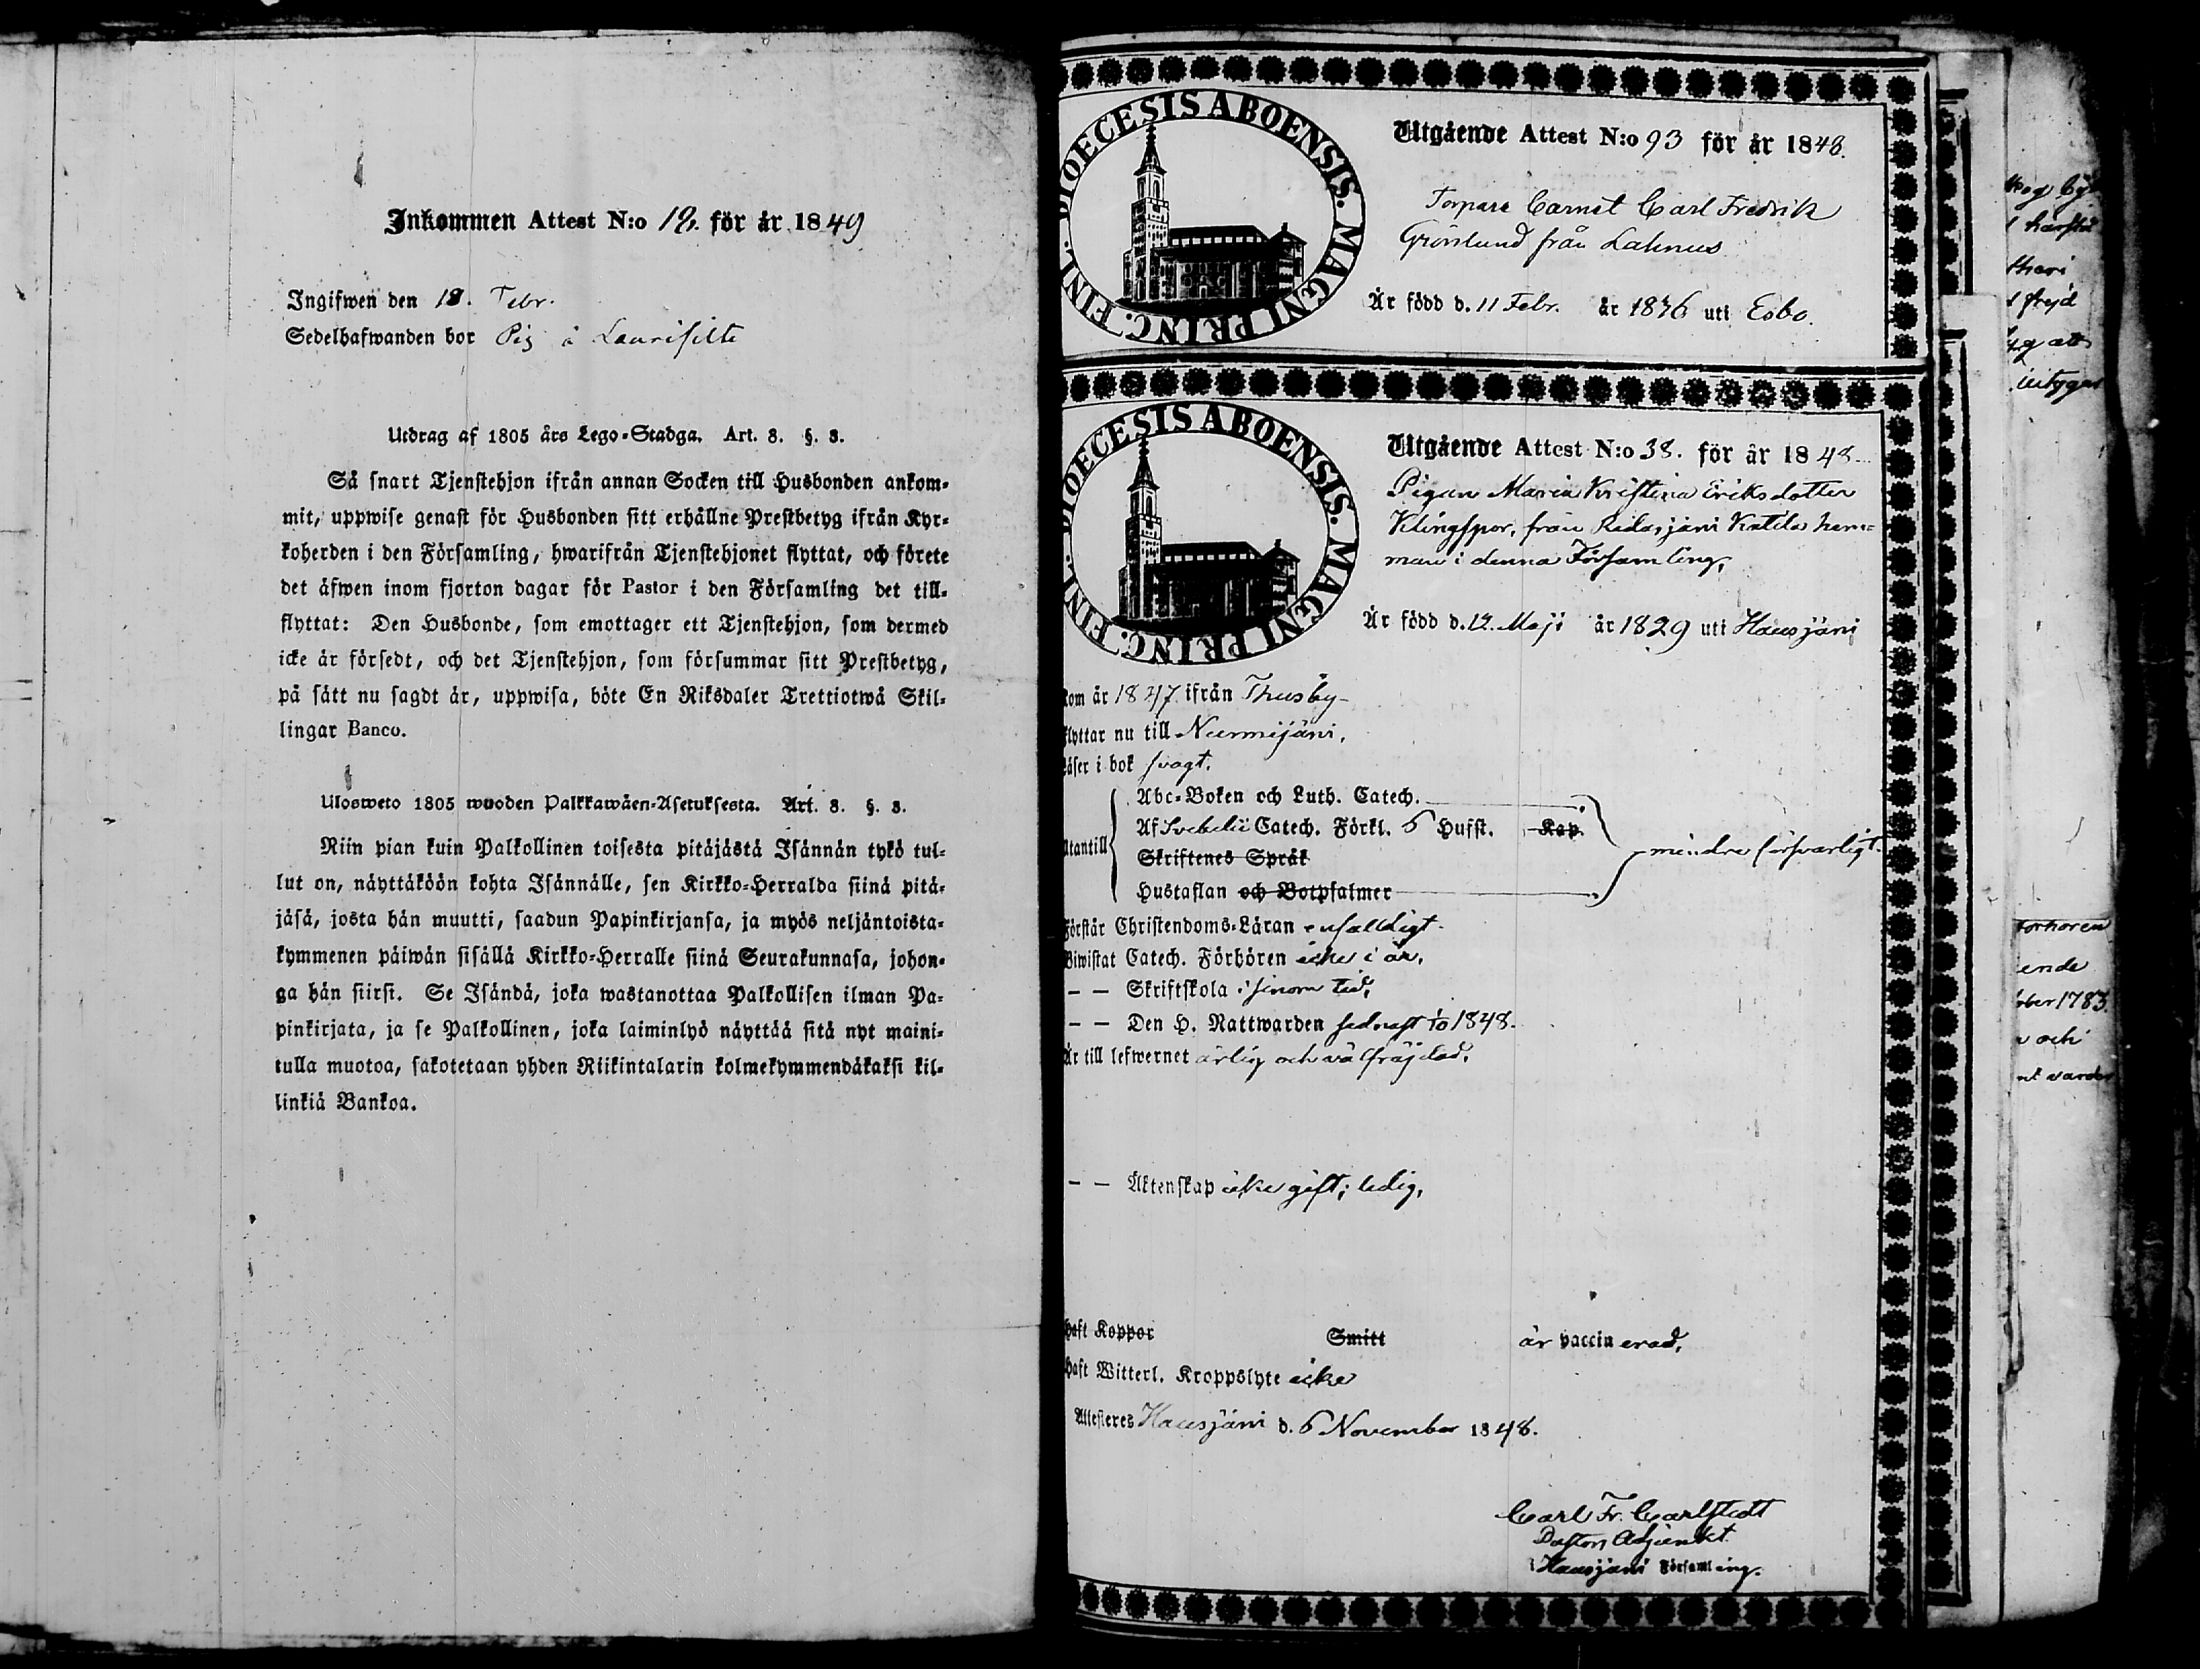 Inkommen Attest N:o 12. för år 1849
Ingifwen den 18. Febr.
Sedelhafwanden bor Pig å Laurisilta
Utdrag af 1805 års Lego-Stadga. Art. 8. §. 3.
Så snart Tjenstehjon ifrån annan Socken till Husbonden ankom-
mit, uppwise genast för Husbonden sitt erhållne Prestbetyg ifrån Kyr-
koherden i den Församling, hwarifrån Tjenstehjonet flyttat, och förete
det äfwen inom fjorton dagar för Pastor i den Församling det till-
flyttat: Den Husbonde, som emottager ett Tjenstehjon, som dermed
icke är försedt, och det Tjenstehjon, som försummar sitt Prestbetyg,
på sätt nu sagdt är, uppwisa, böte En Riksdaler Trettiotwå Skil-
lingar Banco.
Ulosweto 1805 wuoden Palkkawäen-Asetuksesta. Art. 8. §. 3.
Niin pian kuin Palkollinen toisesta pitäjästä Isännän tykö tul-
lut on, näyttäköön kohta Isännälle, sen Kirkko-Herralda siinä pitä-
jäsä, josta hän muutti, saadun Papinkirjansa, ja myös neljäntoista-
kymmenen päiwän sisällä Kirkko-Herralle siinä Seurakunnasa, johon-
ga hän siirsi. Se Isändä, joka wastanottaa Palkollisen ilman Pa-
pinkirjata, ja se Palkollinen, joka laiminlyö näyttää sitä nyt maini-
tulla muotoa, sakotetaan yhden Riikintalarin kolmekymmendäkaksi kil-
linkiä Bankoa.
DIOECESIS ABOENSIS. MAGNI PRINC. FINL.
Utgående Attest N:o 93 för år 1848.
Torpare Carnst Carl Fredrik
Grönlund från Lahnus
Är född d. 11 Febr. år 1836 uti Esbo.
DIOECESIS ABOENSIS. MAGNI PRINC. FINL.
Utgående Attest N:o 38. för år 1848
Pigan Maria Kristina Eriksdotter
Klingspor, från Ridasjärvi Katila hem=
man i denna Församling,
Är född d. 12. Maji år 1829 uti Hausjärvi
kom år 1847 ifrån Thusby
flyttar nu till Nurmijärvi,
Läser i bok svagt.
Abc-Boken och Luth. Catech.
Af Svebelii Catech. Förkl. 6 Hufst. Kap.
Utantill mindre försvarligt.
Skriftenes Språk
Hustaflan och Botpsalmer
Förstår Christendoms-Läran enfaldigt.
Biwistat Catech. Förhören icke i år,
— — Skriftskola i sinom tid,
— — Den H. Nattwarden sednast 1/10 1848.
Är till lefwernet ärlig och välfräjdad,
— — Äktenskap icke gift; ledig,
haft Koppor Smitt är vaccinerad,
haft Witterl. Kroppslyte icke
Attesteres Hausjärvi d. 6 November 1848.
Carl Fr. Carlstedt
Pastors Adjunkt
Hausjärvi Församling.
ende
ber 1783.
och